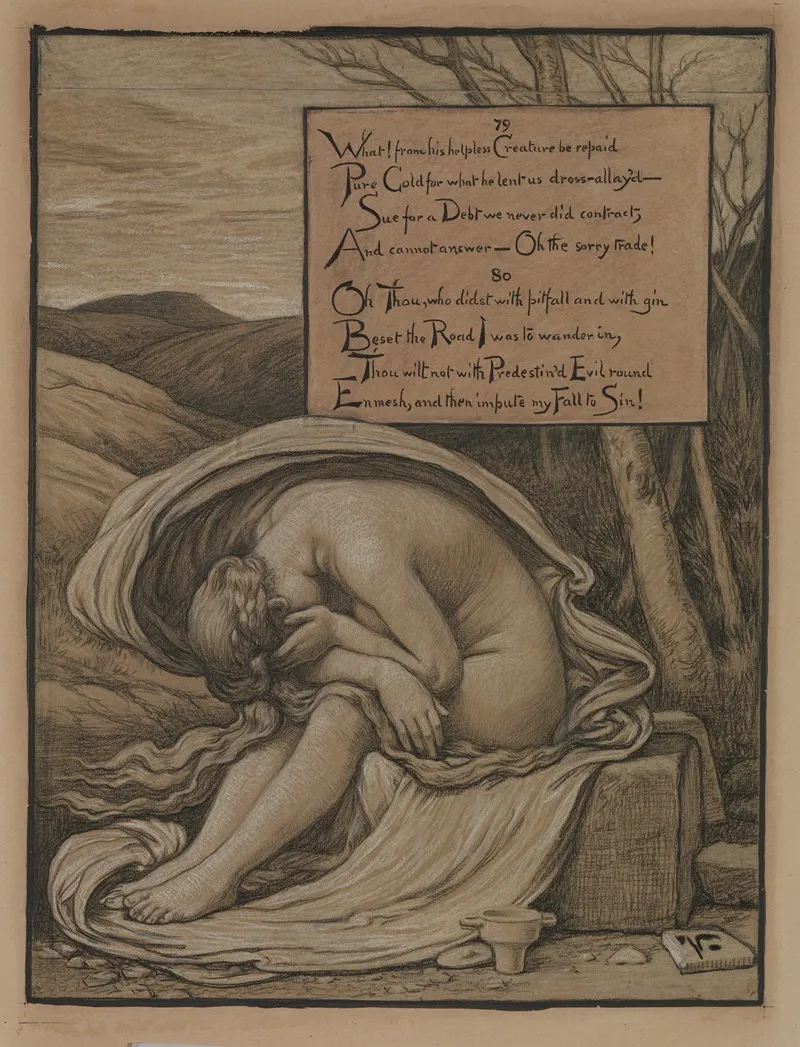 79
What! from his helpless Creature be repaid
Pure Gold for what he lent us dross-allay'd—
Sue for a Debt we never did contract,
And cannot answer— Oh the sorry trade!
80
Oh Thou, who didst with pitfall and with gin
Beset the Road I was to wander in,
Thou wilt not with Predestin'd Evil round
Enmesh, and then impute my Fall to Sin!